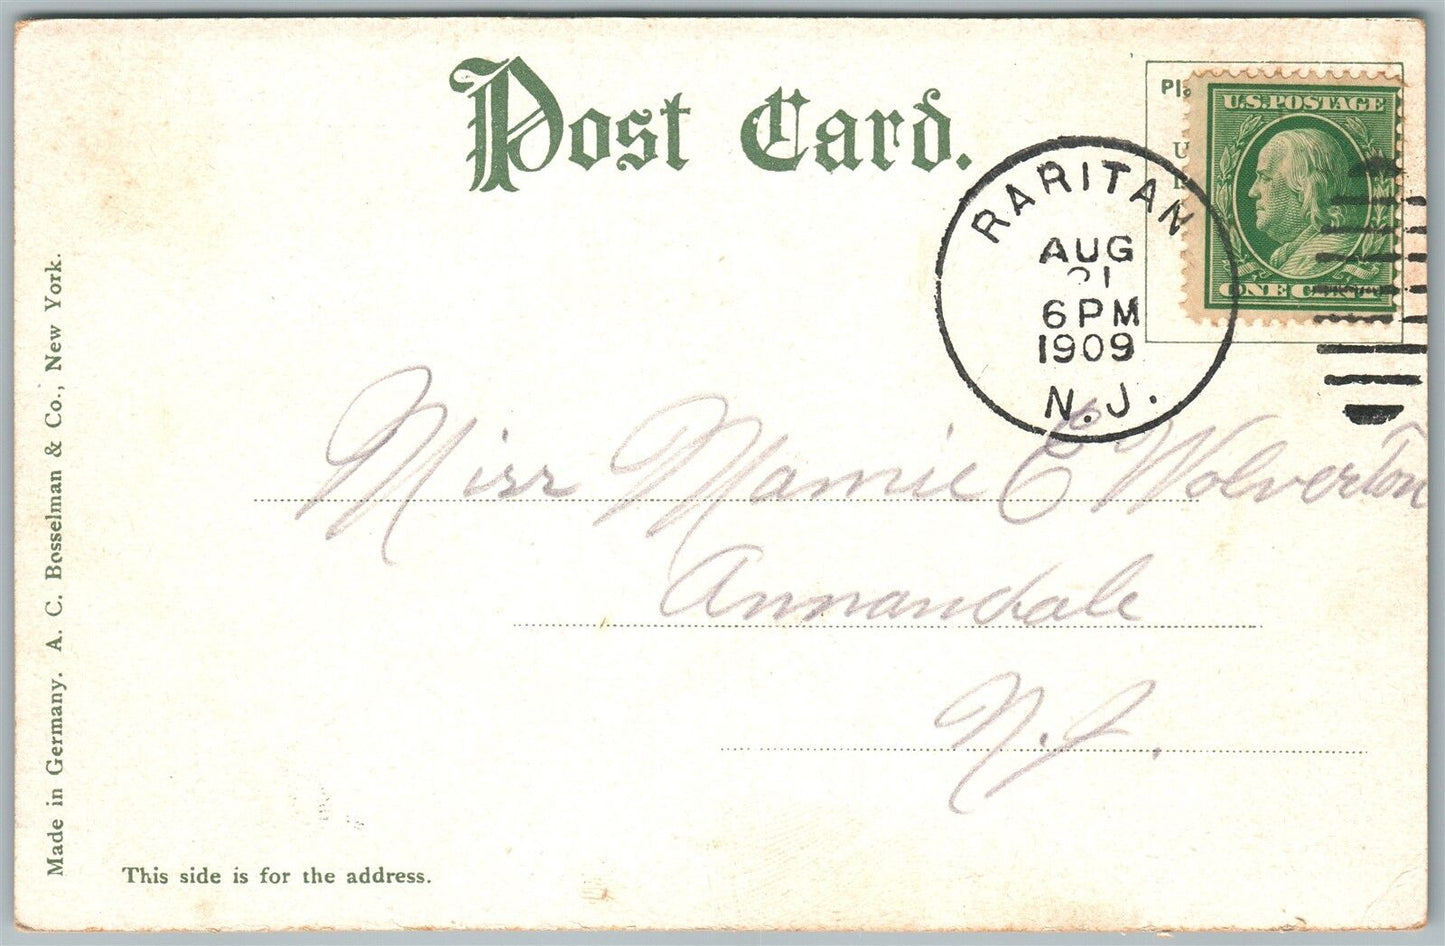 Post Card.
U.S. POSTAGE
ONE CENT
RARITAN
AUG
21
6 PM
1909
N.J.
Miss Mamie E Wolverton
Annandale
N.J.
Made in Germany. A. C. Bosselman & Co., New York.
This side is for the address.